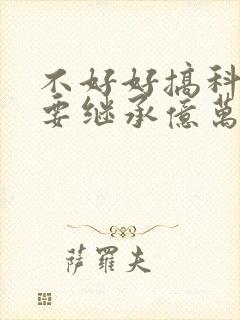 不好好搞科
要继承億萬
薩羅夫